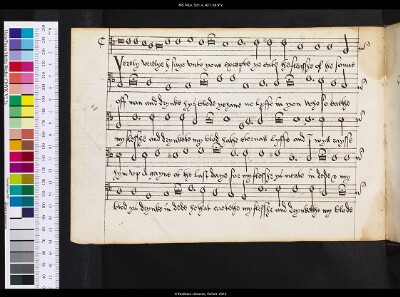 Verely verely I saye unto yowe excepte ye eate the flesshe of the sonne
off man and drynke hys blode ye have no lyffe in yow who so eateth
my flesshe and drynketh my blod hathe eternall lyffe and I wyll raysse
hym up a gayne at the last daye for my flesshe ys meate in dede & my
blod ys drynke in dede he that eateth my flesshe and drynketh my blode